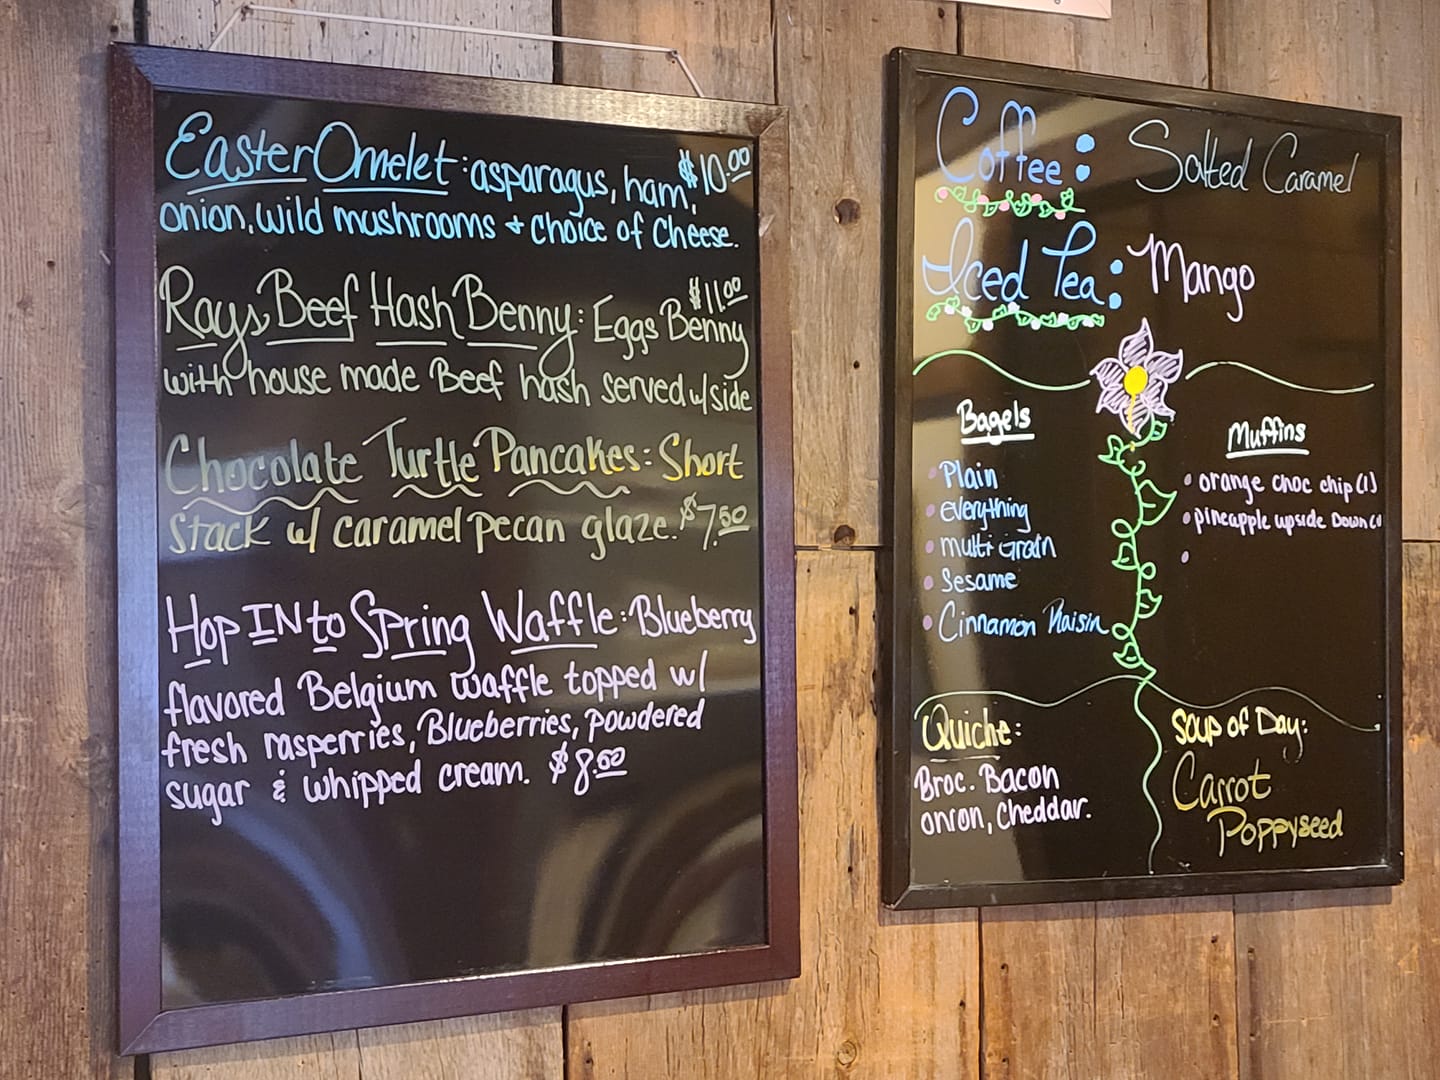 Easter Omelet: asparagus, ham, $10.00
onion, wild mushrooms + choice of cheese.
Rays Beef Hash Benny: Eggs Benny $11.00
with house made Beef hash served w/ side
Chocolate Turtle Pancakes: Short
stack w/ caramel pecan glaze. $7.50
Hop IN to Spring Waffle: Blueberry
flavored Belgium waffle topped w/
fresh rasperries, Blueberries, powdered
sugar & whipped cream. $8.50
Coffee: Salted Caramel
Iced Tea: Mango
Bagels
Plain
everything
multi Grain
Sesame
Cinnamon Raisin
Muffins
orange choc chip (1)
pineapple upside Down
Quiche:
Broc. Bacon
onion, cheddar.
Soup of Day:
Carrot
Poppyseed